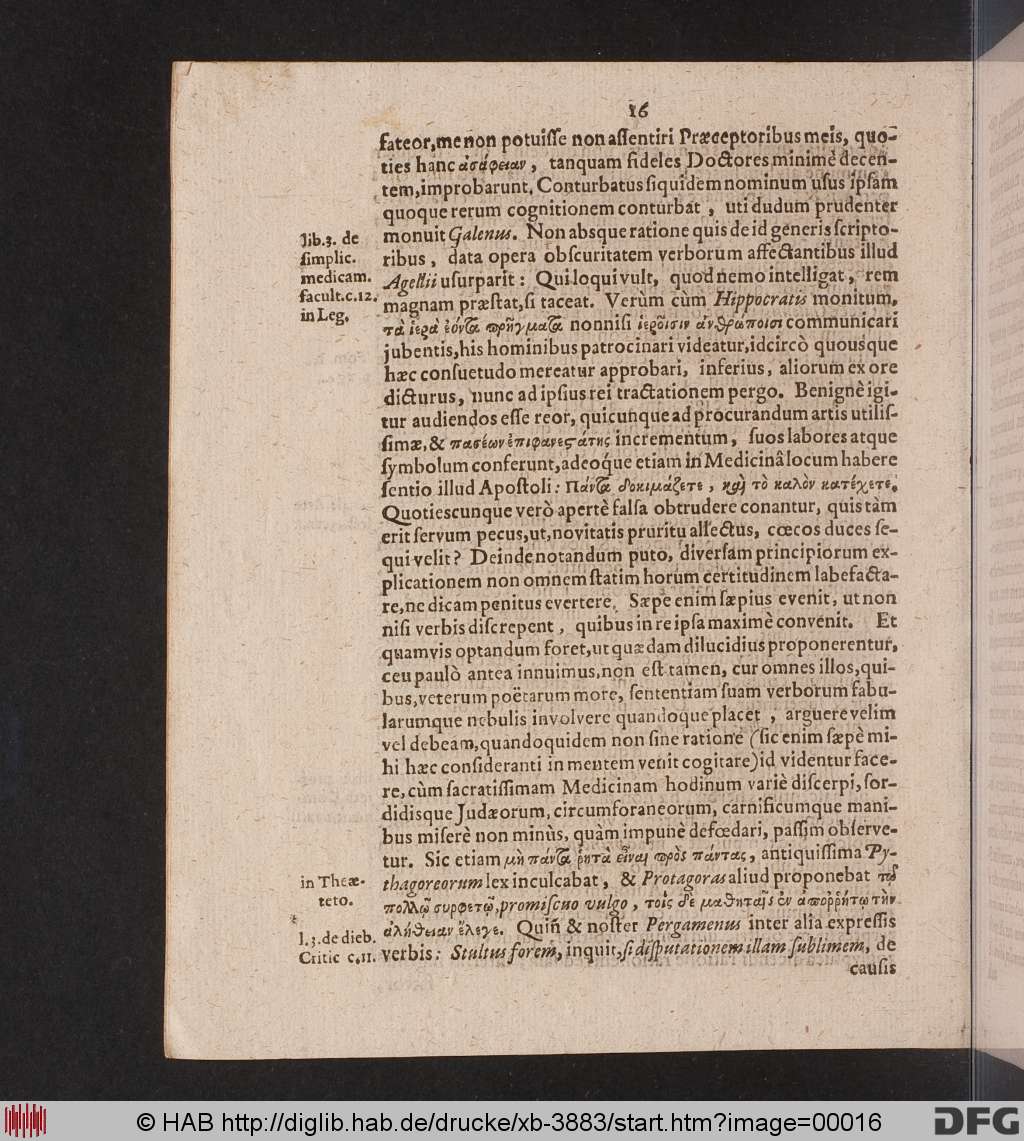 16
fateor,me non potuiſſe non aſſentiri Præceptoribus meis, quo-
ties hanc ἀσάφειαν, tanquam fideles Doctores minimè decen-
tem,improbarunt. Conturbatus ſiquidem nominum uſus ipſam
quoque rerum cognitionem conturbat, uti dudum prudenter
monuit Galenus. Non absque ratione quis de id generis ſcripto-
ribus, data opera obſcuritatem verborum affectantibus illud
Agellii uſurparit: Qui loqui vult, quod nemo intelligat, rem
magnam præſtat,ſi taceat. Verùm cùm Hippocratis monitum,
τὰ ἱερὰ ἐόντα πρῆγματα nonniſi ἱεροῖσιν ἀνθρώποισι communicari
jubentis,his hominibus patrocinari videatur,idcircò quousque
hæc conſuetudo mereatur approbari, inferius, aliorum ex ore
dicturus, nunc ad ipſius rei tractationem pergo. Benignè igi-
tur audiendos eſſe reor, quicunque ad procurandum artis utiliſ-
ſimæ,& πασέων ἐπιφανεστάτης incrementum, ſuos labores atque
ſymbolum conferunt,adeoq́ue etiam in Medicinâ locum habere
ſentio illud Apoſtoli: Πάντα δοκιμάζετε, καὶ τὸ καλὸν κατέχετε.
Quotiescunque verò apertè falſa obtrudere conantur, quis tàm
erit ſervum pecus,ut,novitatis pruritu affectus, cœcos duces ſe-
qui velit? Deinde notandum puto, diverſam principiorum ex-
plicationem non omnem ſtatim horum certitudinem labefacta-
re,ne dicam penitus evertere. Sæpe enim ſæpius evenit, ut non
niſi verbis diſcrepent, quibus in re ipſa maximè convenit. Et
quamvis optandum foret,ut quædam dilucidius proponerentur,
ceu paulò antea innuimus,non eſt tamen, cur omnes illos,qui-
bus,veterum poëtarum more, ſententiam ſuam verborum fabu-
larumque nebulis involvere quandoque placet, arguere velim
vel debeam,quandoquidem non ſine ratione (ſic enim ſæpè mi-
hi hæc conſideranti in mentem venit cogitare)id videntur face-
re,cùm ſacratiſſimam Medicinam hodinum variè diſcerpi,ſor-
didisque Judæorum, circumforaneorum, carnificumque mani-
bus miſerè non minùs, quàm impunè defœdari, paſſim obſerve-
tur. Sic etiam μὴ πάντα ῥητὰ εἶναι πρὸς πάντας, antiquiſſima Py-
thagoreorum lex inculcabat, & Protagoras aliud proponebat τῷ
πολλῷ συρφετῷ,promiſcuo vulgo, τοῖς δὲ μαθηταῖς ἐν ἀποῤῥήτῳ τὴν
ἀλήθειαν ἔλεγε. Quiñ & noſter Pergamenus inter alia expreſſis
verbis: Stultus forem, inquit,ſi diſputationem illam ſublimem, de
cauſis
lib.3. de
ſimplic.
medicam.
facult.c.12.
in Leg.
in Theæ-
teto.
l.3.de dieb.
Critic c.11.
© HAB http://diglib.hab.de/drucke/xb-3883/start.htm?image=00016
DFG